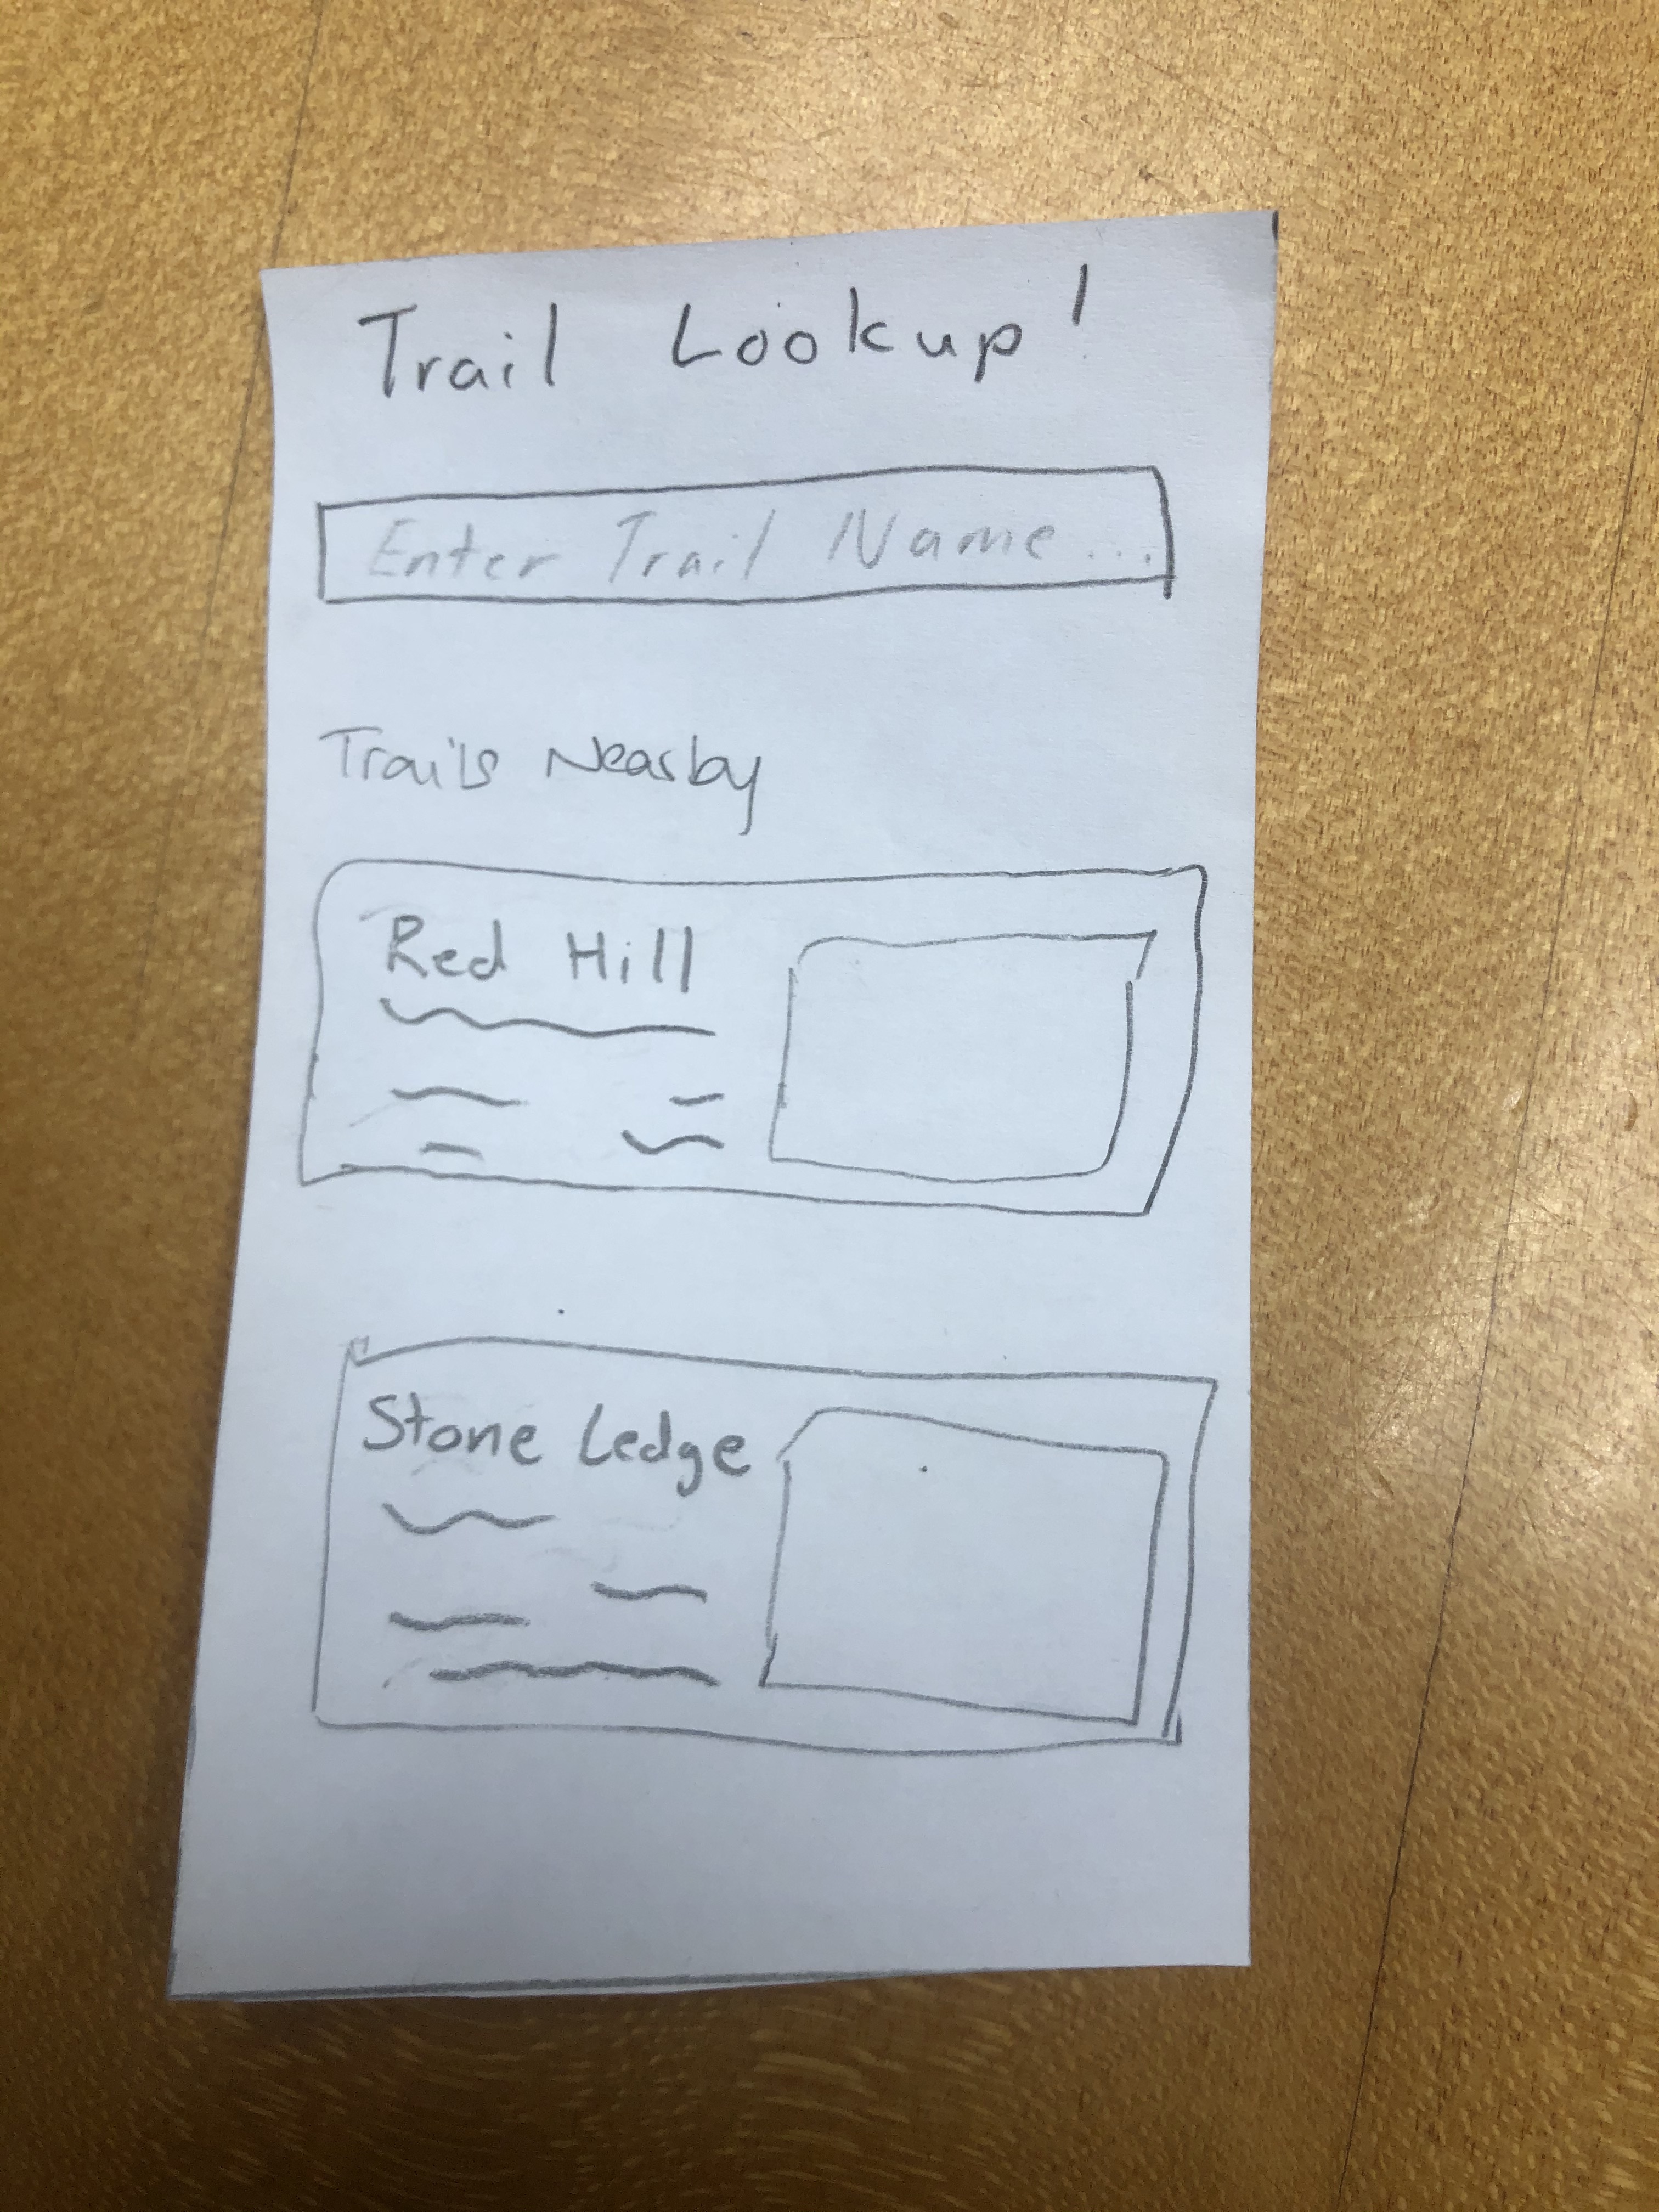 Trail Lookup!
Enter Trail Name...
Trails Nearby
Red Hill
Stone Ledge